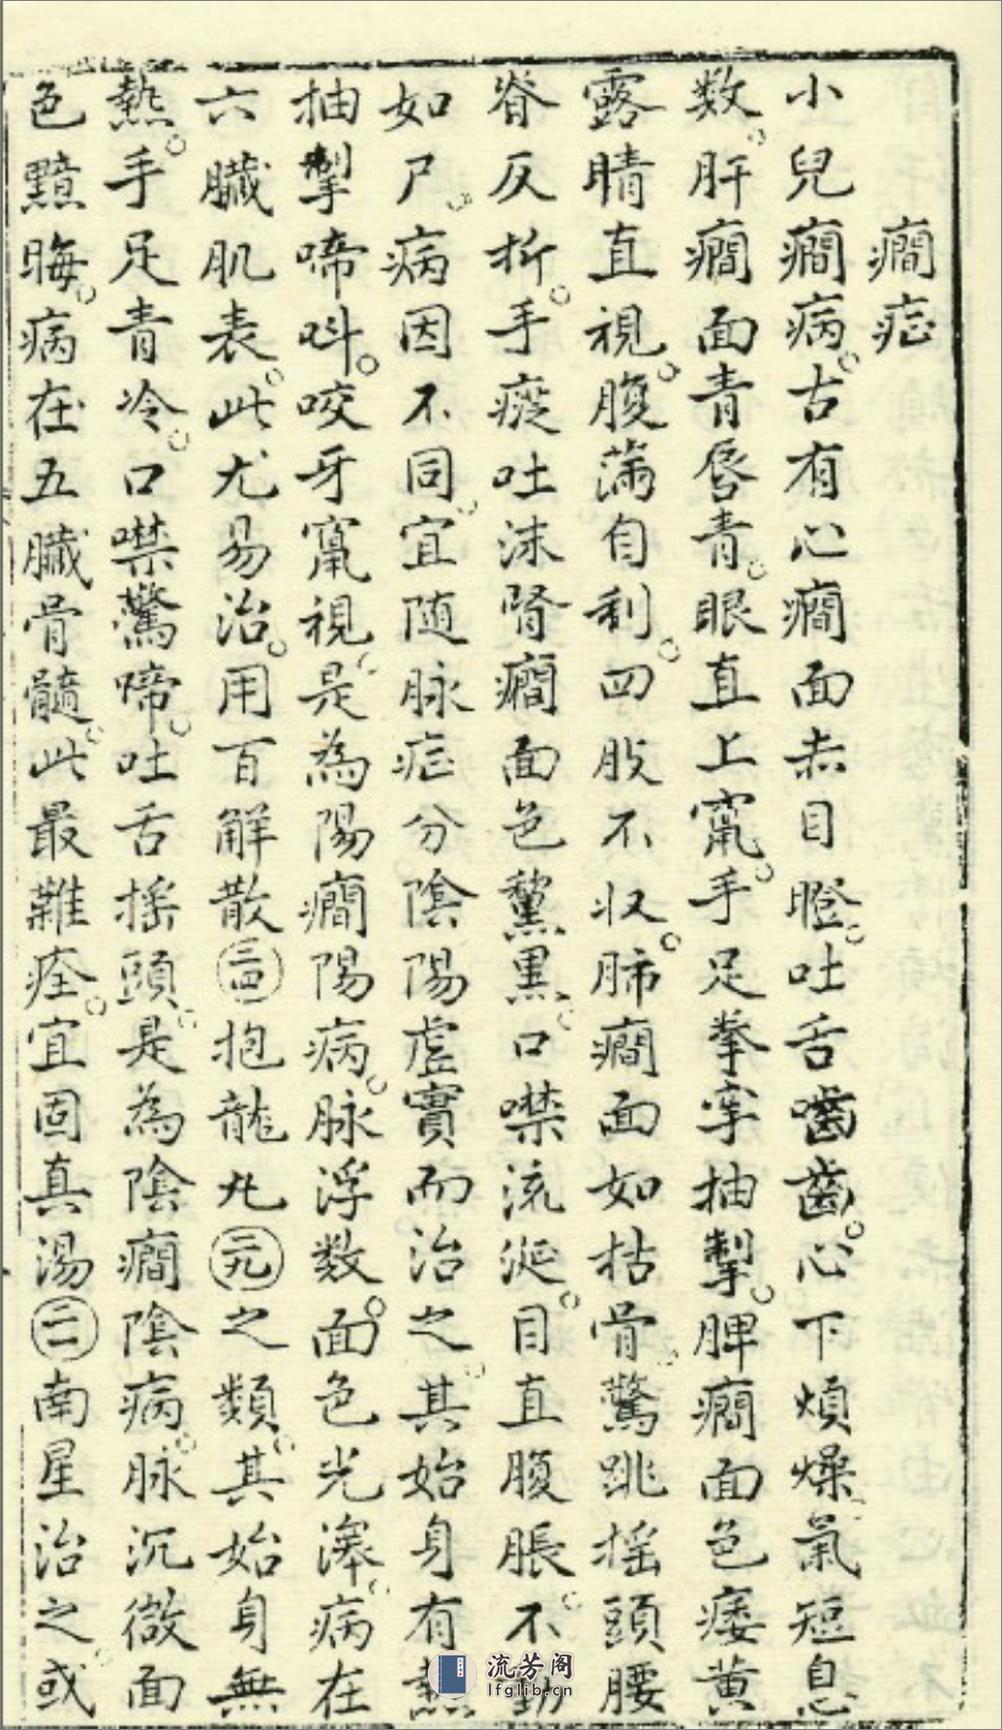 癇症
小兒癇病古有心癇面赤目瞪吐舌嚙齒心下煩燥氣短息
数肝癇面青唇青眼直上竄手足拳孪抽掣脾癇面色痿黄
露睛直視腹滿自利四肢不収肺癇面如枯骨驚跳搖頭腰
脊反折手癡吐沫腎癇面色黧黒口噤流涎目直腹脹不動
如尸病因不同宜随脉症分陰陽虚實而治之其始身有熱
抽掣啼呌咬牙竄視是為陽癇陽病脉浮数面色光澤病在
六臓肌表此尤易治用百解散三四抱龍丸二九之類其始身無
熱手足青冷口噤驚啼吐舌搖頭是為陰癇陰病脉沉微面
色黯晦病在五臓骨髓此最難痊宜固真湯二一南星治之或
流芳阁
lfglib.cn